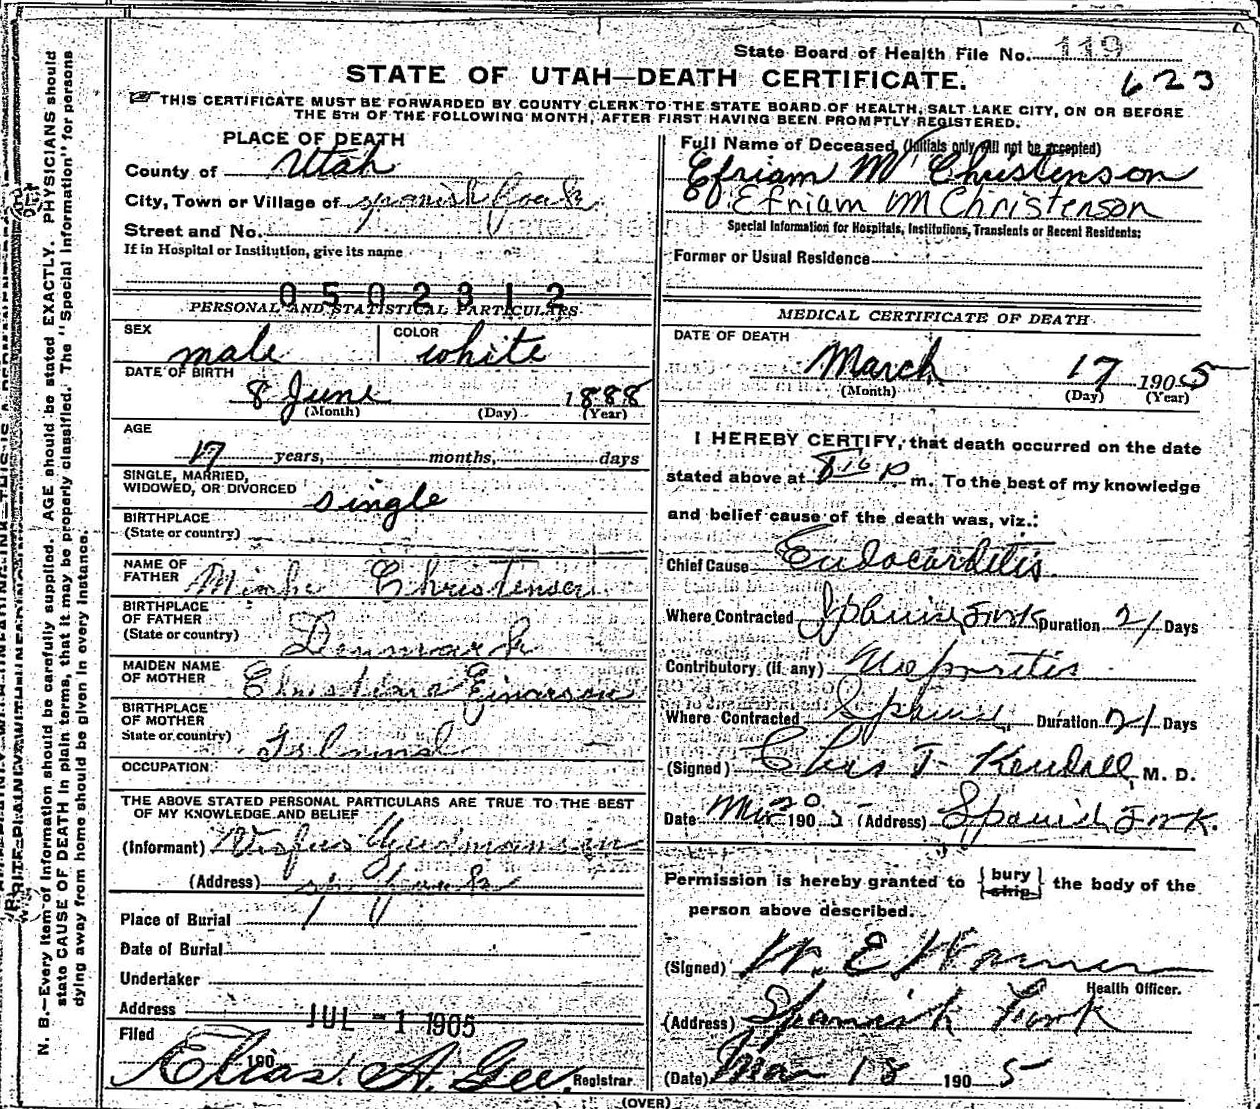 State Board of Health File No. 119
623
STATE OF UTAH—DEATH CERTIFICATE.
THIS CERTIFICATE MUST BE FORWARDED BY COUNTY CLERK TO THE STATE BOARD OF HEALTH, SALT LAKE CITY, ON OR BEFORE
THE 5TH OF THE FOLLOWING MONTH, AFTER FIRST HAVING BEEN PROMPTLY REGISTERED.
PLACE OF DEATH
County of Utah
City, Town or Village of Spanish Fork
Street and No.
If in Hospital or Institution, give its name
0502312
PERSONAL AND STATISTICAL PARTICULARS
SEX male
COLOR white
DATE OF BIRTH
8 June 1888
(Month) (Day) (Year)
AGE
17 years, months, days
SINGLE, MARRIED,
WIDOWED, OR DIVORCED single
BIRTHPLACE
(State or country)
NAME OF
FATHER Christensen
BIRTHPLACE
OF FATHER
(State or country) Denmark
MAIDEN NAME
OF MOTHER Einarson
BIRTHPLACE
OF MOTHER
State or country)
OCCUPATION
THE ABOVE STATED PERSONAL PARTICULARS ARE TRUE TO THE BEST
OF MY KNOWLEDGE AND BELIEF
(Informant)
(Address) Sp Fork
Place of Burial
Date of Burial
Undertaker
Address
JUL -1 1905
Filed
190
Elias A. Gee, Registrar
Full Name of Deceased (Initials only will not be accepted)
Efriam M Christenson
Efriam M Christenson
Special Information for Hospitals, Institutions, Transients or Recent Residents:
Former or Usual Residence
MEDICAL CERTIFICATE OF DEATH
DATE OF DEATH
March 17 1905
(Month) (Day) (Year)
I HEREBY CERTIFY, that death occurred on the date
stated above at p m. To the best of my knowledge
and belief cause of the death was, viz.:
Chief Cause Endocarditis
Where Contracted Spanish Fork Duration 21 Days
Contributory (if any) Nephritis
Where Contracted Duration 21 Days
(Signed) Chas T Kendall M. D.
Date Mar 20 1905 (Address) Spanish Fork.
Permission is hereby granted to bury ship the body of the
person above described.
(Signed) W. E. Warner
Health Officer.
(Address) Spanish Fork
(Date) Mar 18 1905
(OVER)
N. B.—Every item of information should be carefully supplied. AGE should be stated EXACTLY. PHYSICIANS should
state CAUSE OF DEATH in plain terms, that it may be properly classified. The "Special Information" for persons
dying away from home should be given in every instance.